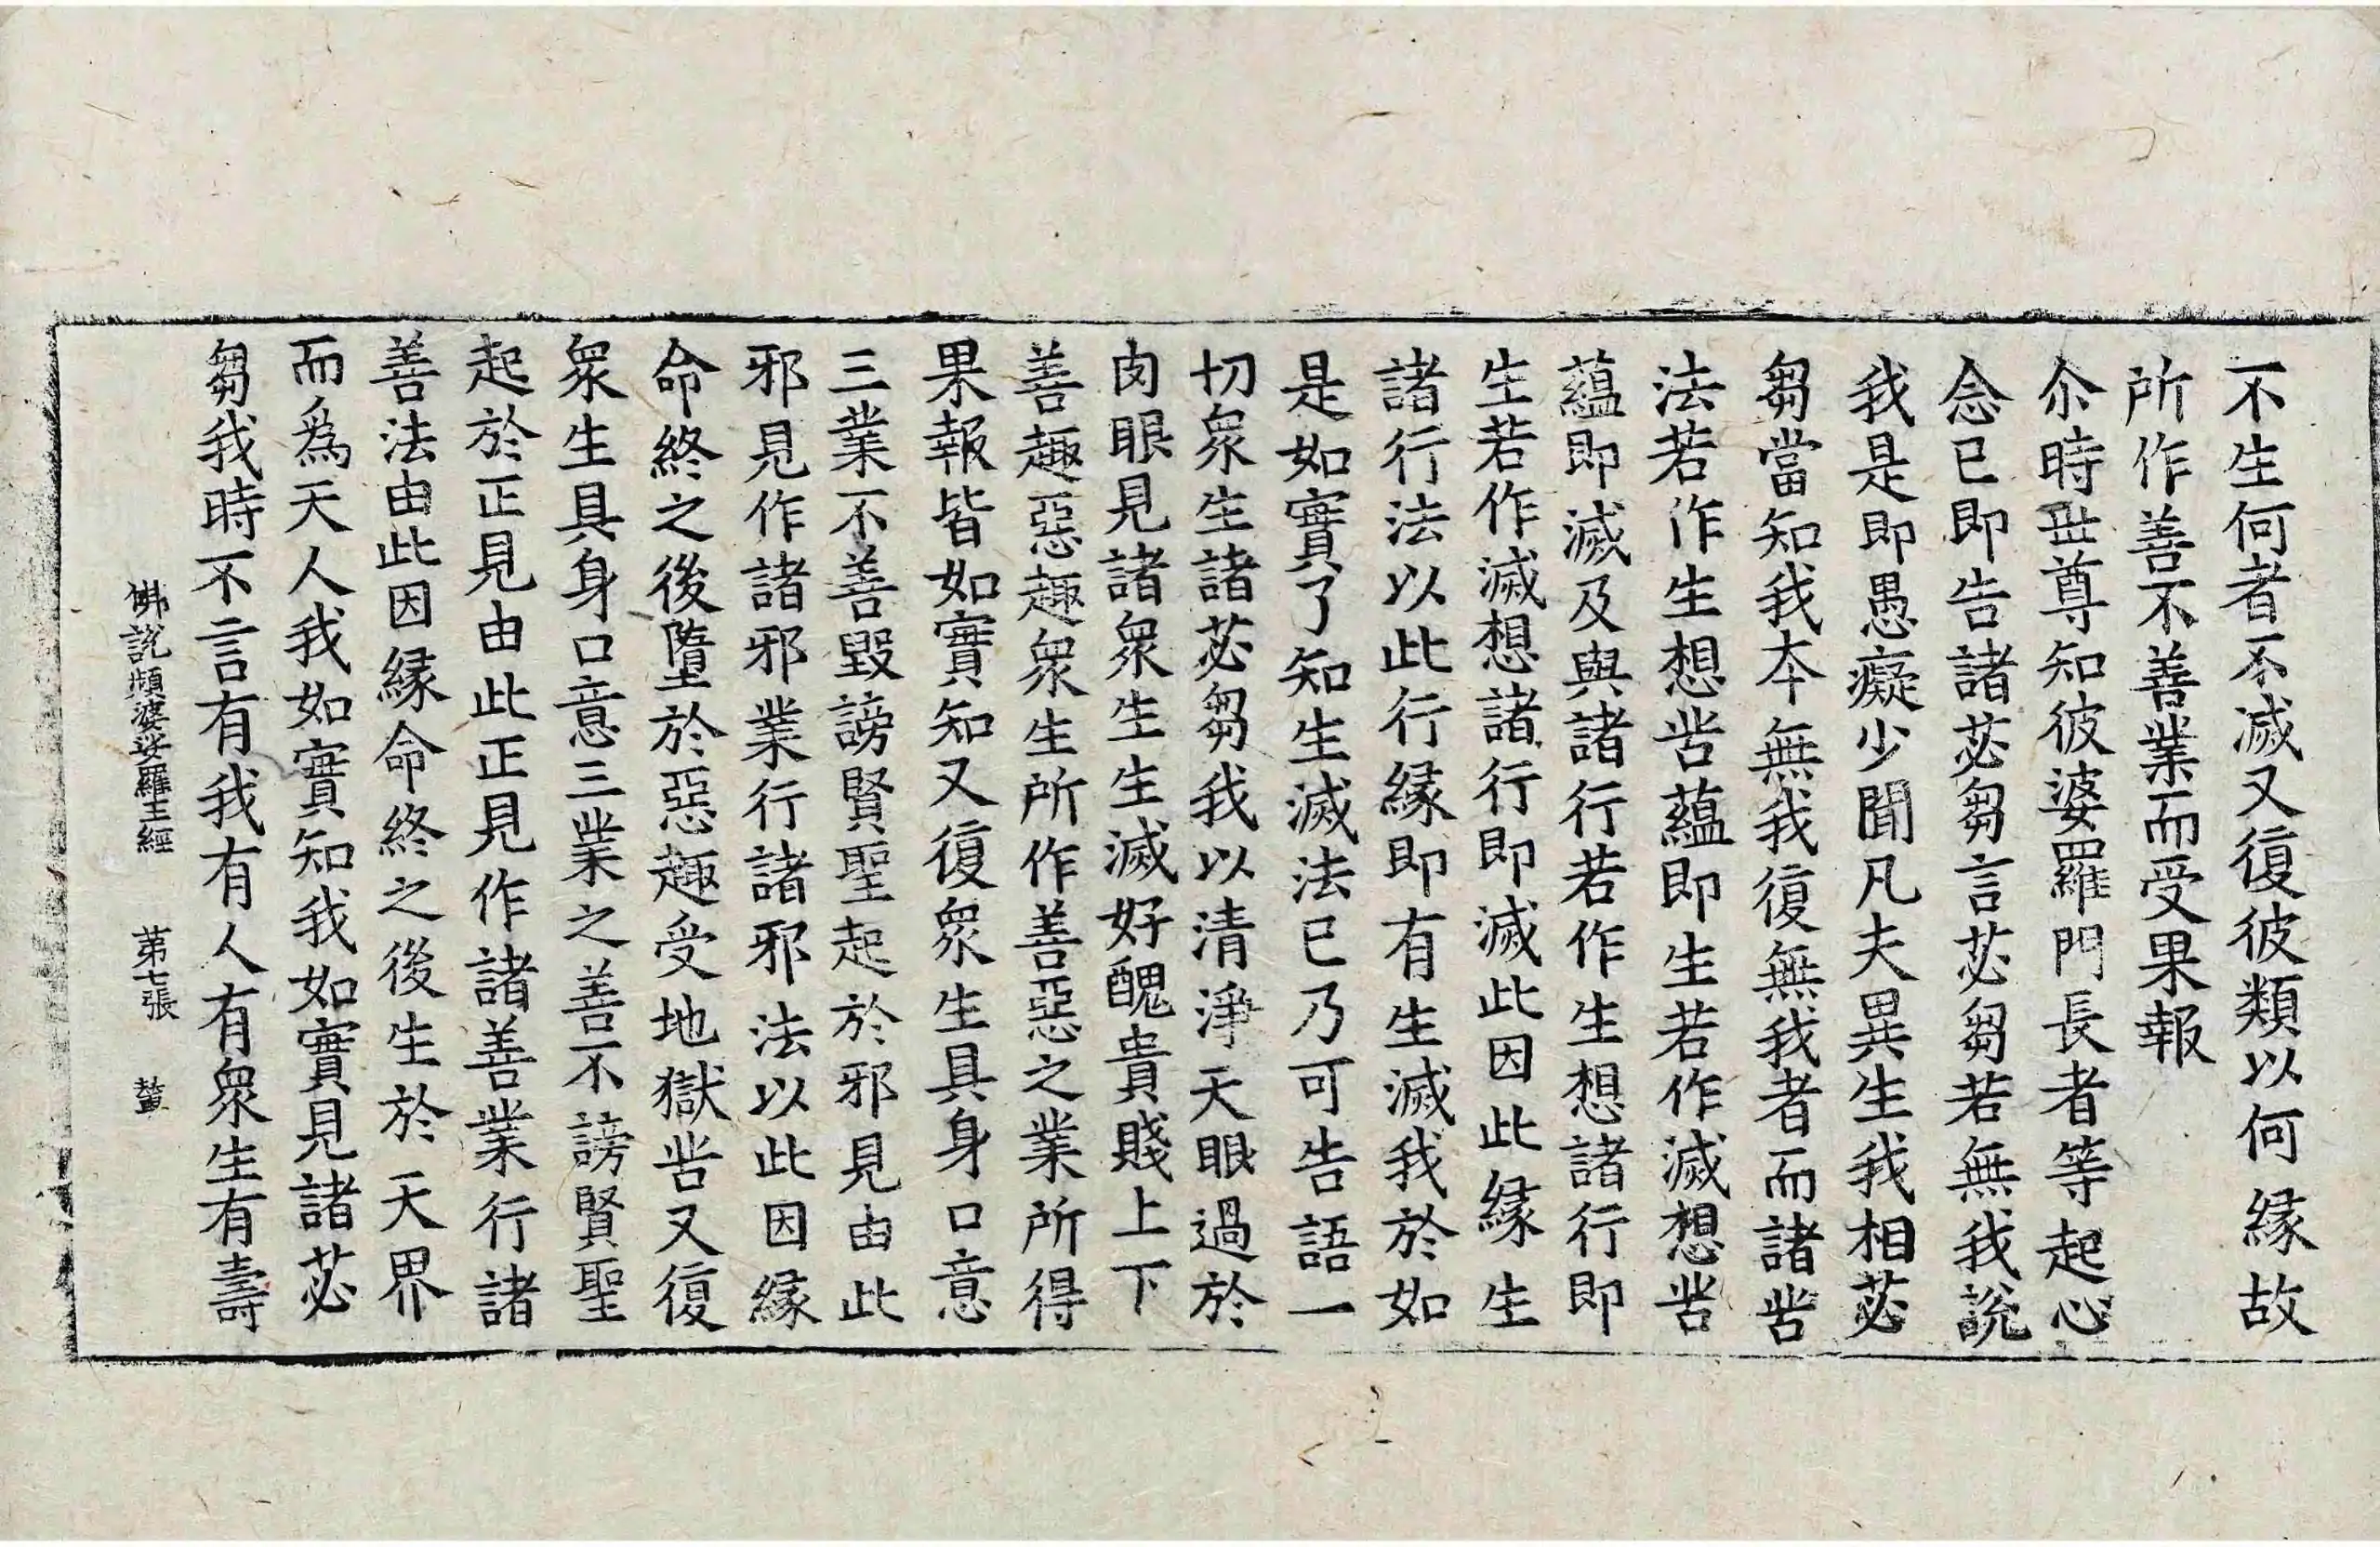 不生何者不滅又復彼類以何緣故
所作善不善業而受果報
尒時世尊知彼婆羅門長者等起心
念已即告諸苾芻言苾芻若無我說
我是即愚癡少聞凡夫異生我相苾
芻當知我本無我復無我者而諸苦
法若作生想苦蘊即生若作滅想苦
蘊即滅及與諸行若作生想諸行即
生若作滅想諸行即滅此因此緣生
諸行法以此行緣即有生滅我於如
是如實了知生滅法已乃可告語一
切衆生諸苾芻我以清淨天眼過於
肉眼見諸衆生生滅好醜貴賤上下
善趣惡趣衆生所作善惡之業所得
果報皆如實知又復衆生具身口意
三業不善毀謗賢聖起於邪見由此
邪見作諸邪業行諸邪法以此因緣
命終之後墮於惡趣受地獄苦又復
衆生具身口意三業之善不謗賢聖
起於正見由此正見作諸善業行諸
善法由此因緣命終之後生於天界
而爲天人我如實知我如實見諸苾
芻我時不言有我有人有衆生有壽
佛說頻婆娑羅王經 第七張